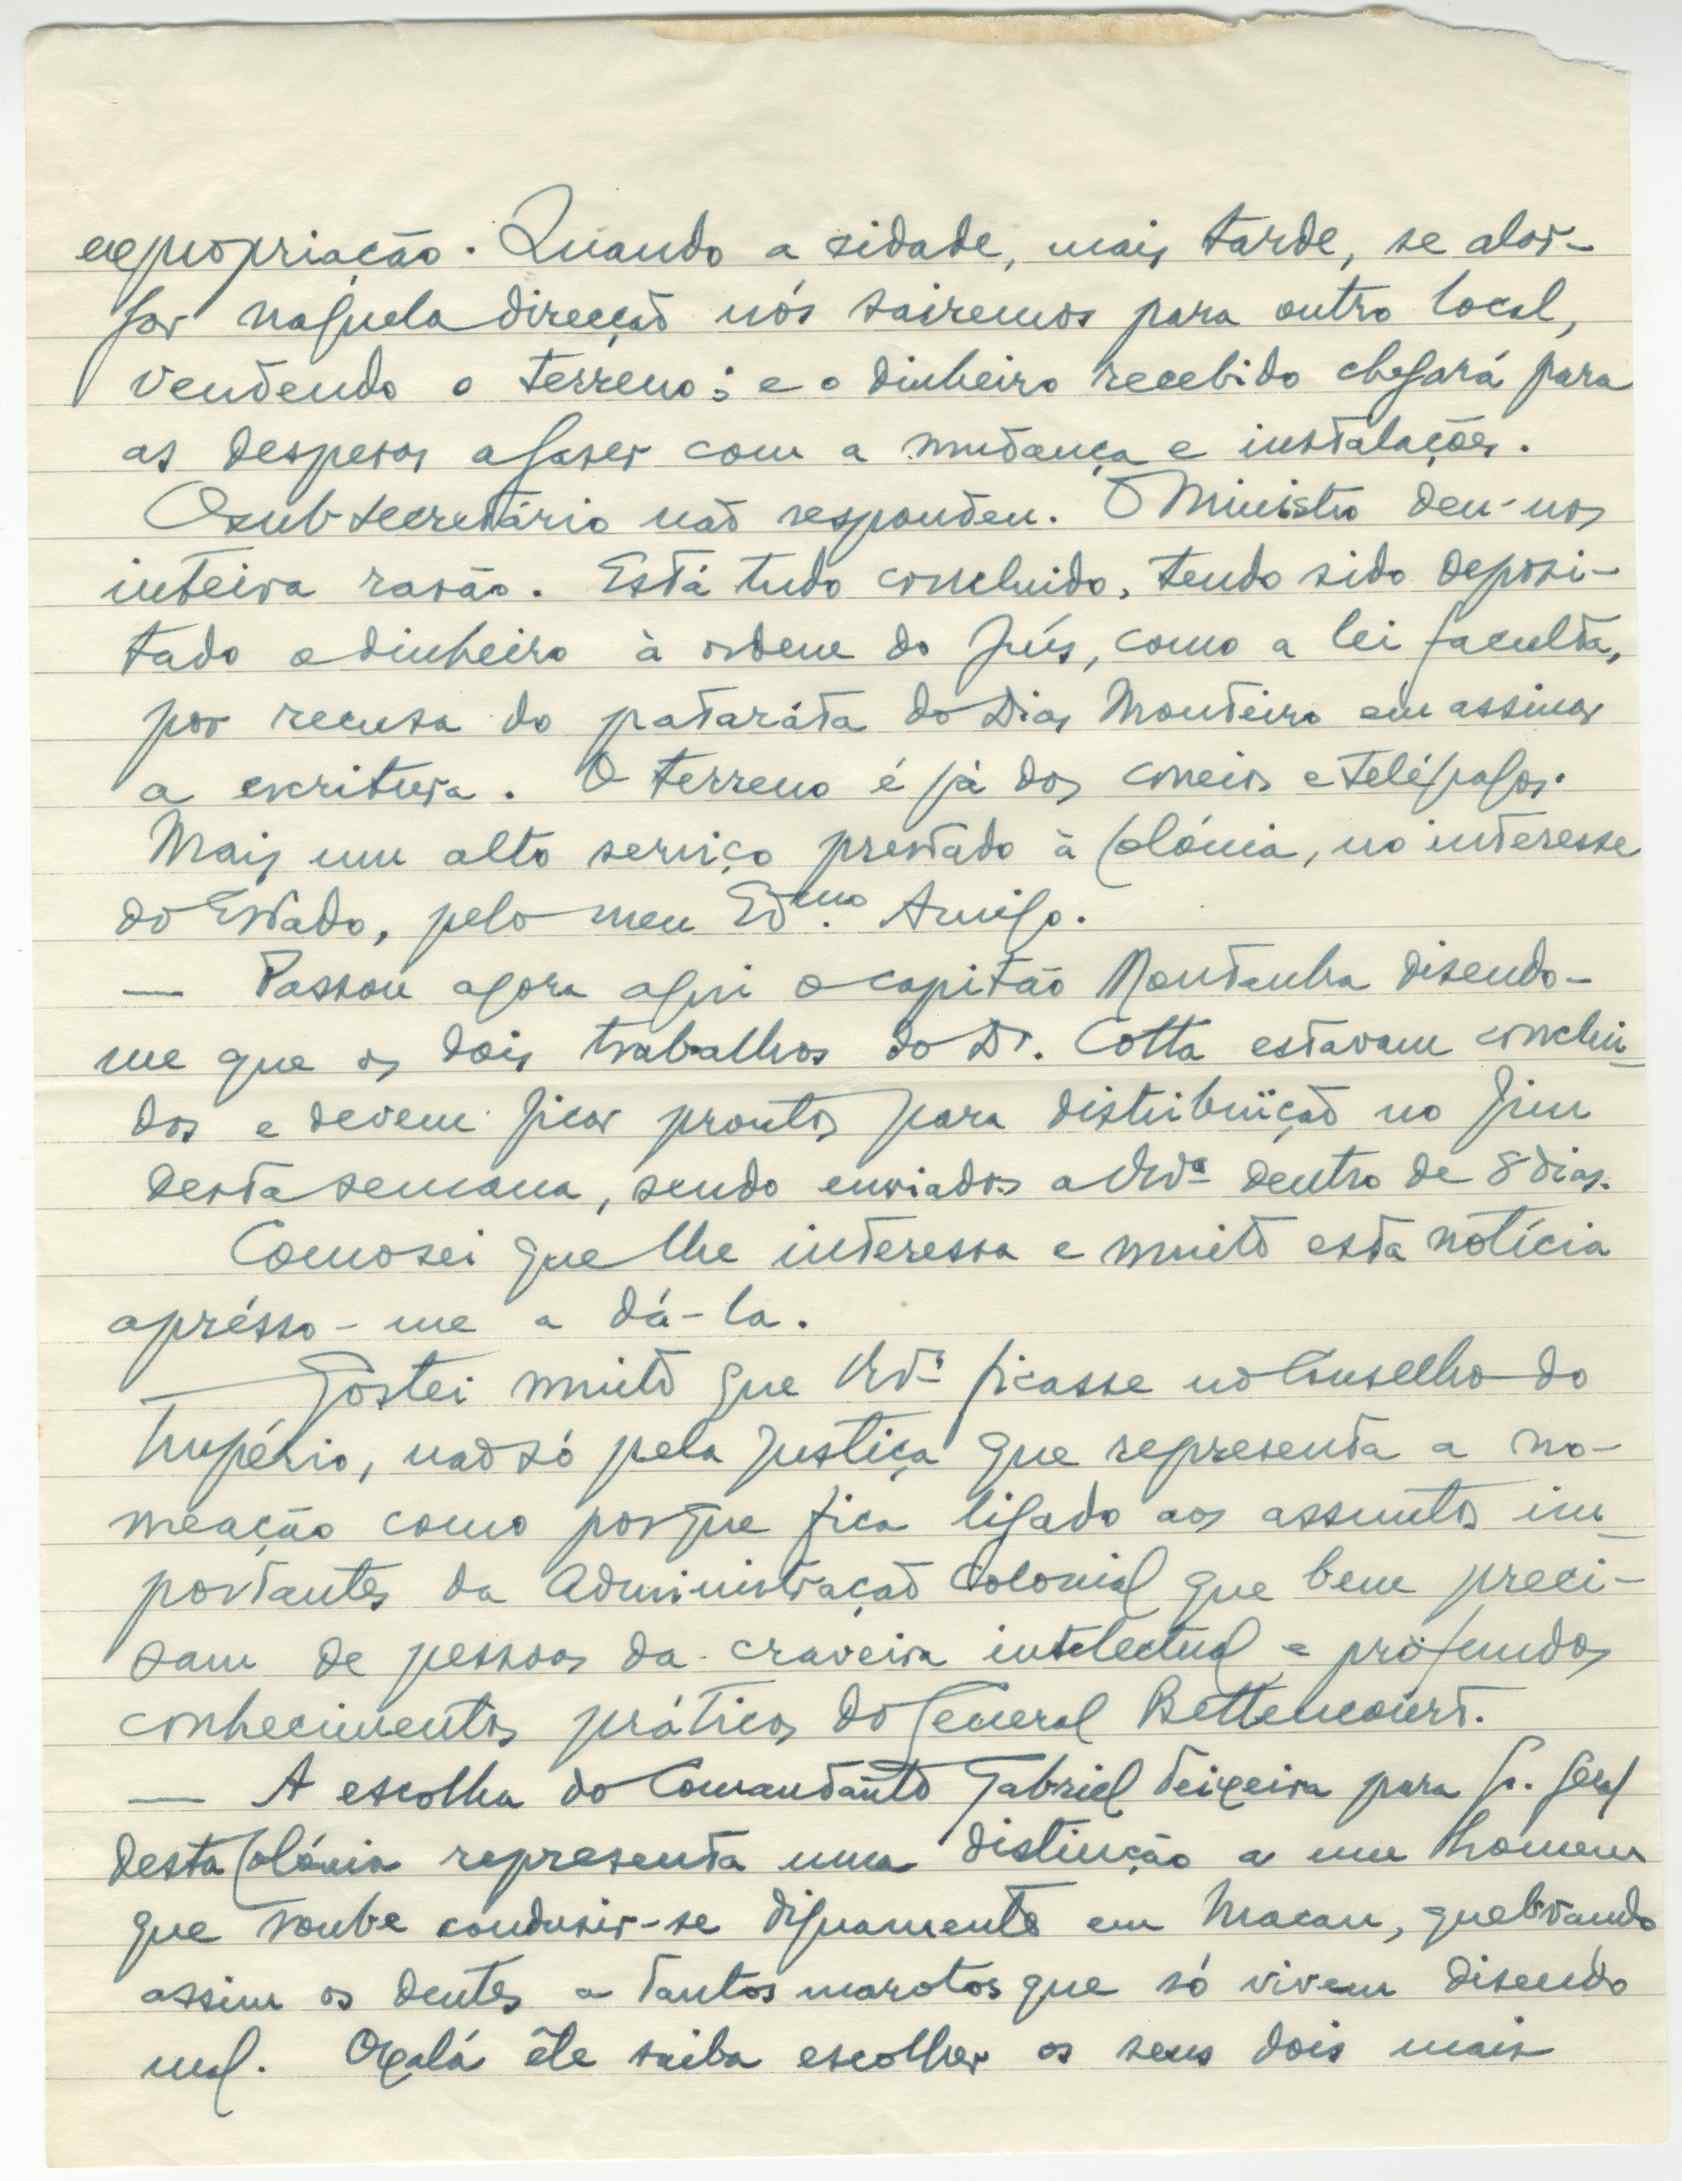 expropriação. Quando a cidade, mais tarde, se alar-
gar naquela direcção nós sairemos para outro local,
vendendo o terreno; e o dinheiro recebido chegará para
as despesas a faser com a mudança e instalações.
O sub-secretário não respondeu. O Ministro deu-nos
inteira rasão. Está tudo concluido, tendo sido deposi-
tado o dinheiro à ordem do Juís, como a lei faculta,
por recusa do pataráta do Dias Monteiro em assinar
a escritura. O terreno é já dos correios e telégrafos.
Mais um alto serviço prestado à Colónia, no interesse
do Estado, pelo meu Ed.mo Amigo.
— Passou agora aqui o capitão Montanha disendo-
me que os dois trabalhos do Dr. Cotta estavam conclui-
dos e devem ficar prontos para distribuïção no fim
desta semana, sendo enviados a V. dentro de 8 dias.
Como sei que lhe interessa e muito esta notícia
aprésso-me a dá-la.
— Gostei muito que ficasse no Conselho do
Império, não só pela justiça que representa a no-
meação como porque fica ligado aos assuntos im-
portantes da Administração Colonial que bem preci-
sam de pessoas da craveira intelectual e profundos
conhecimentos práticos do General Bettencourt.
— A escolha do Comandante Gabriel Teixeira para G. Geral
desta Colónia representa uma distinção a um homem
que soube condusir-se dignamente em Macau, quebrando
assim os dentes a tantos marotos que só vivem disendo
mal. Oxalá êle saiba escolher os seus dois mais